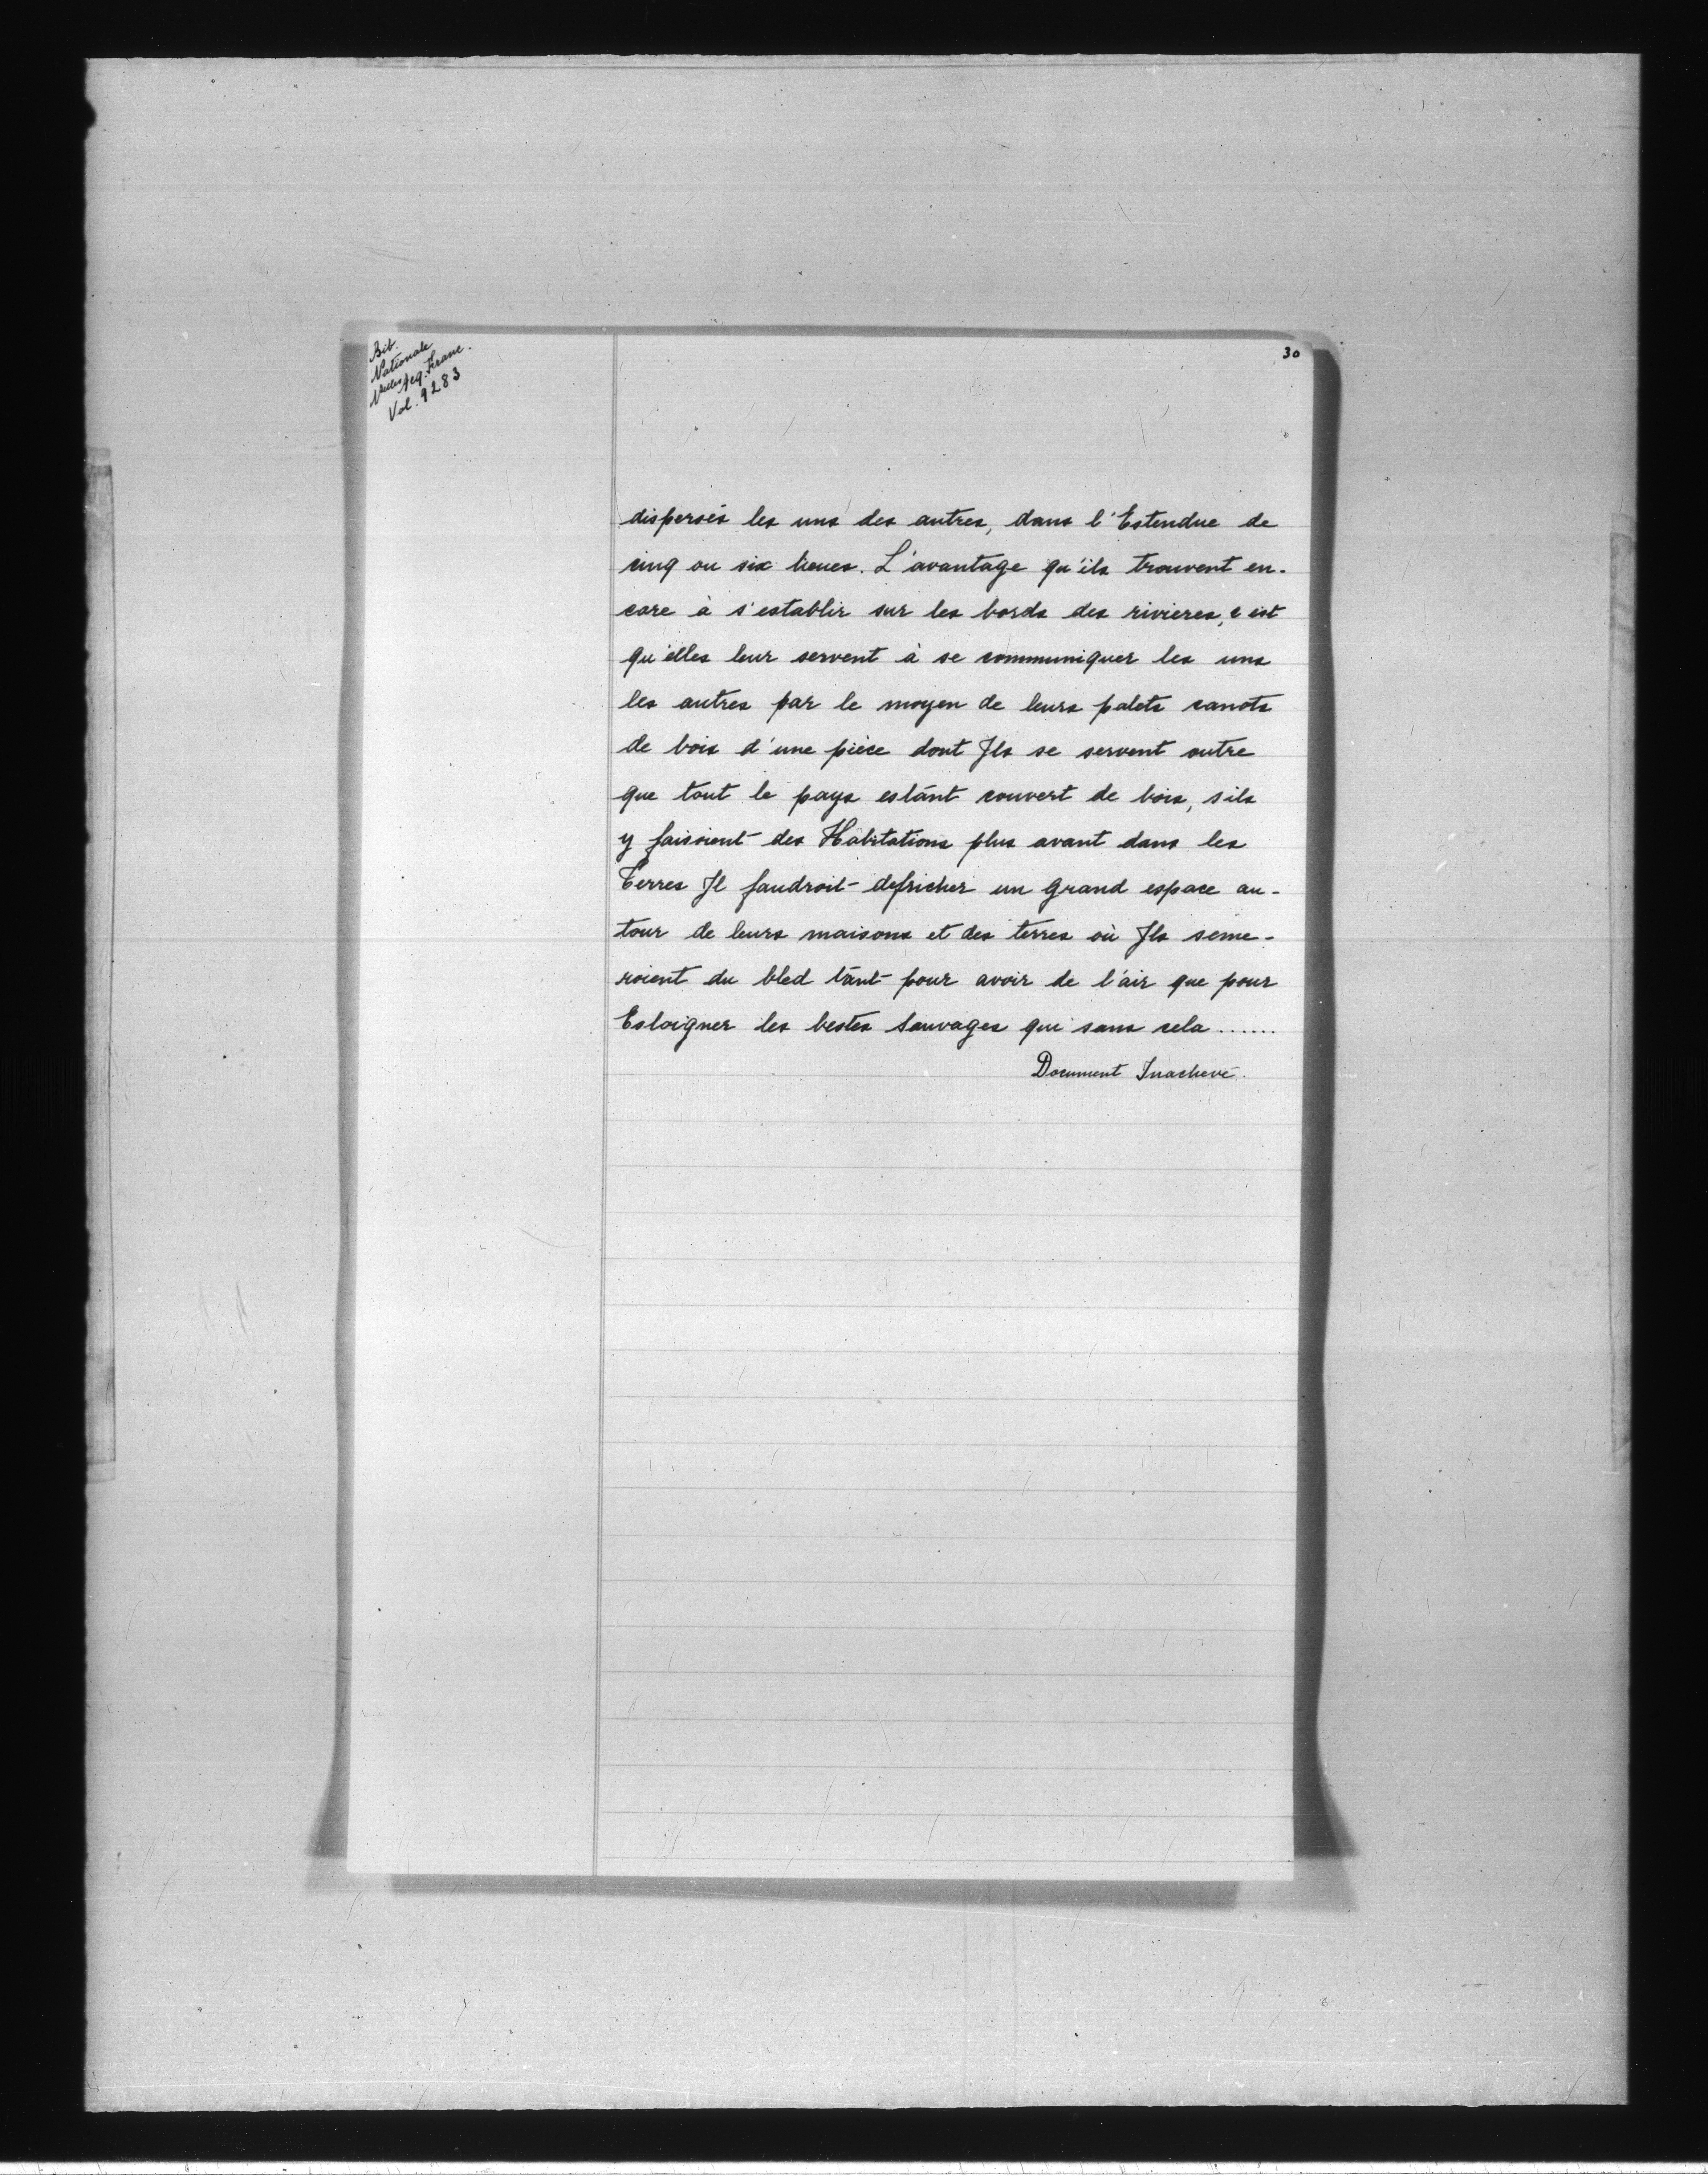 Bib.
Nationale
Nelles Acq. Franc.
Vol. 9283
30
dispersés les uns des autres, dans l'Estendue de
cinq ou six lieues. L'avantage qu'ils trouvent en-
core à s'establir sur les bords des rivieres, c'est
qu'elles leur servent à se communiquer les uns
les autres par le moyen de leurs petits canots
de bois d'une pièce dont Ils se servent outre
que tout le pays estánt couvert de bois, s'ils
y faisoient des Habitations plus avant dans les
Terres Il faudroit defricher un grand espace au-
tour de leurs maisons et des terres où Ils seme-
roient du bled tant pour avoir de l'air que pour
Esloigner les bestes Sauvages qui sans cela ......
Document Inachevé.